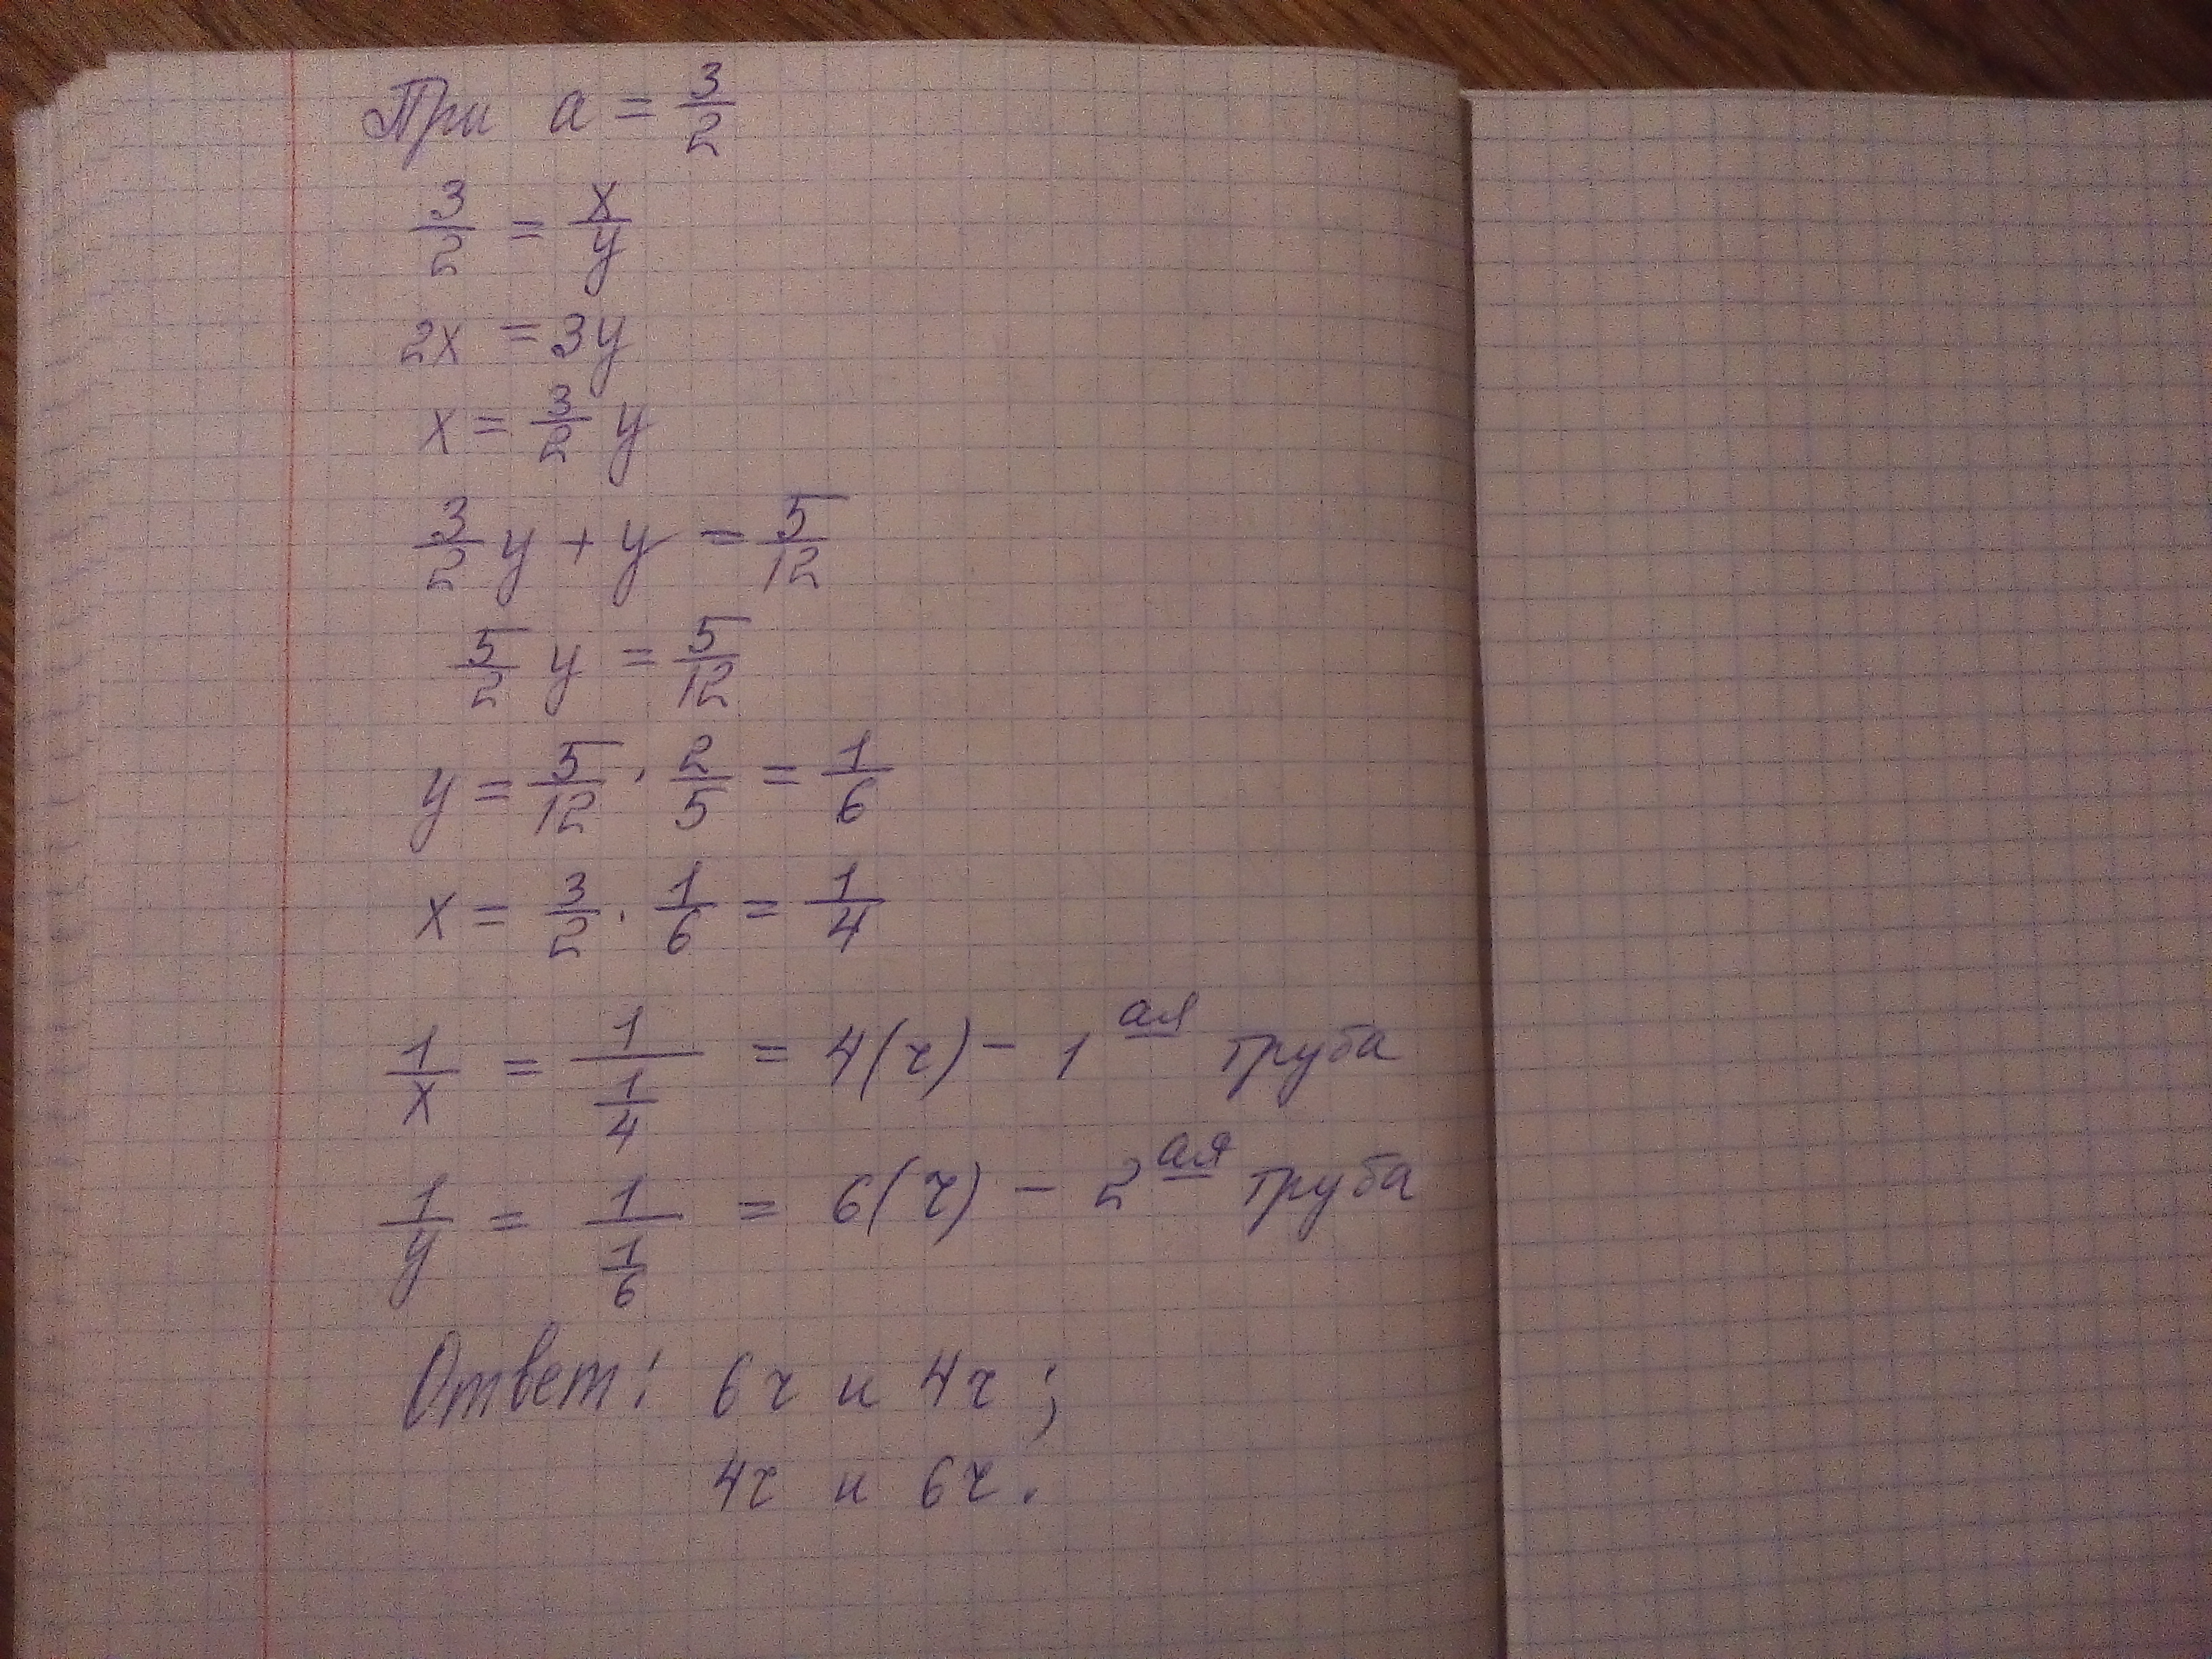 При a = 3/2
3/2 = x/y
2x = 3y
x = 3/2 y
3/2 y + y = 5/12
5/2 y = 5/12
y = 5/12 · 2/5 = 1/6
x = 3/2 · 1/6 = 1/4
1/x = 1/(1/4) = 4(ч) - 1ая труба
1/y = 1/(1/6) = 6(ч) - 2ая труба
Ответ: 6ч и 4ч;
4ч и 6ч.